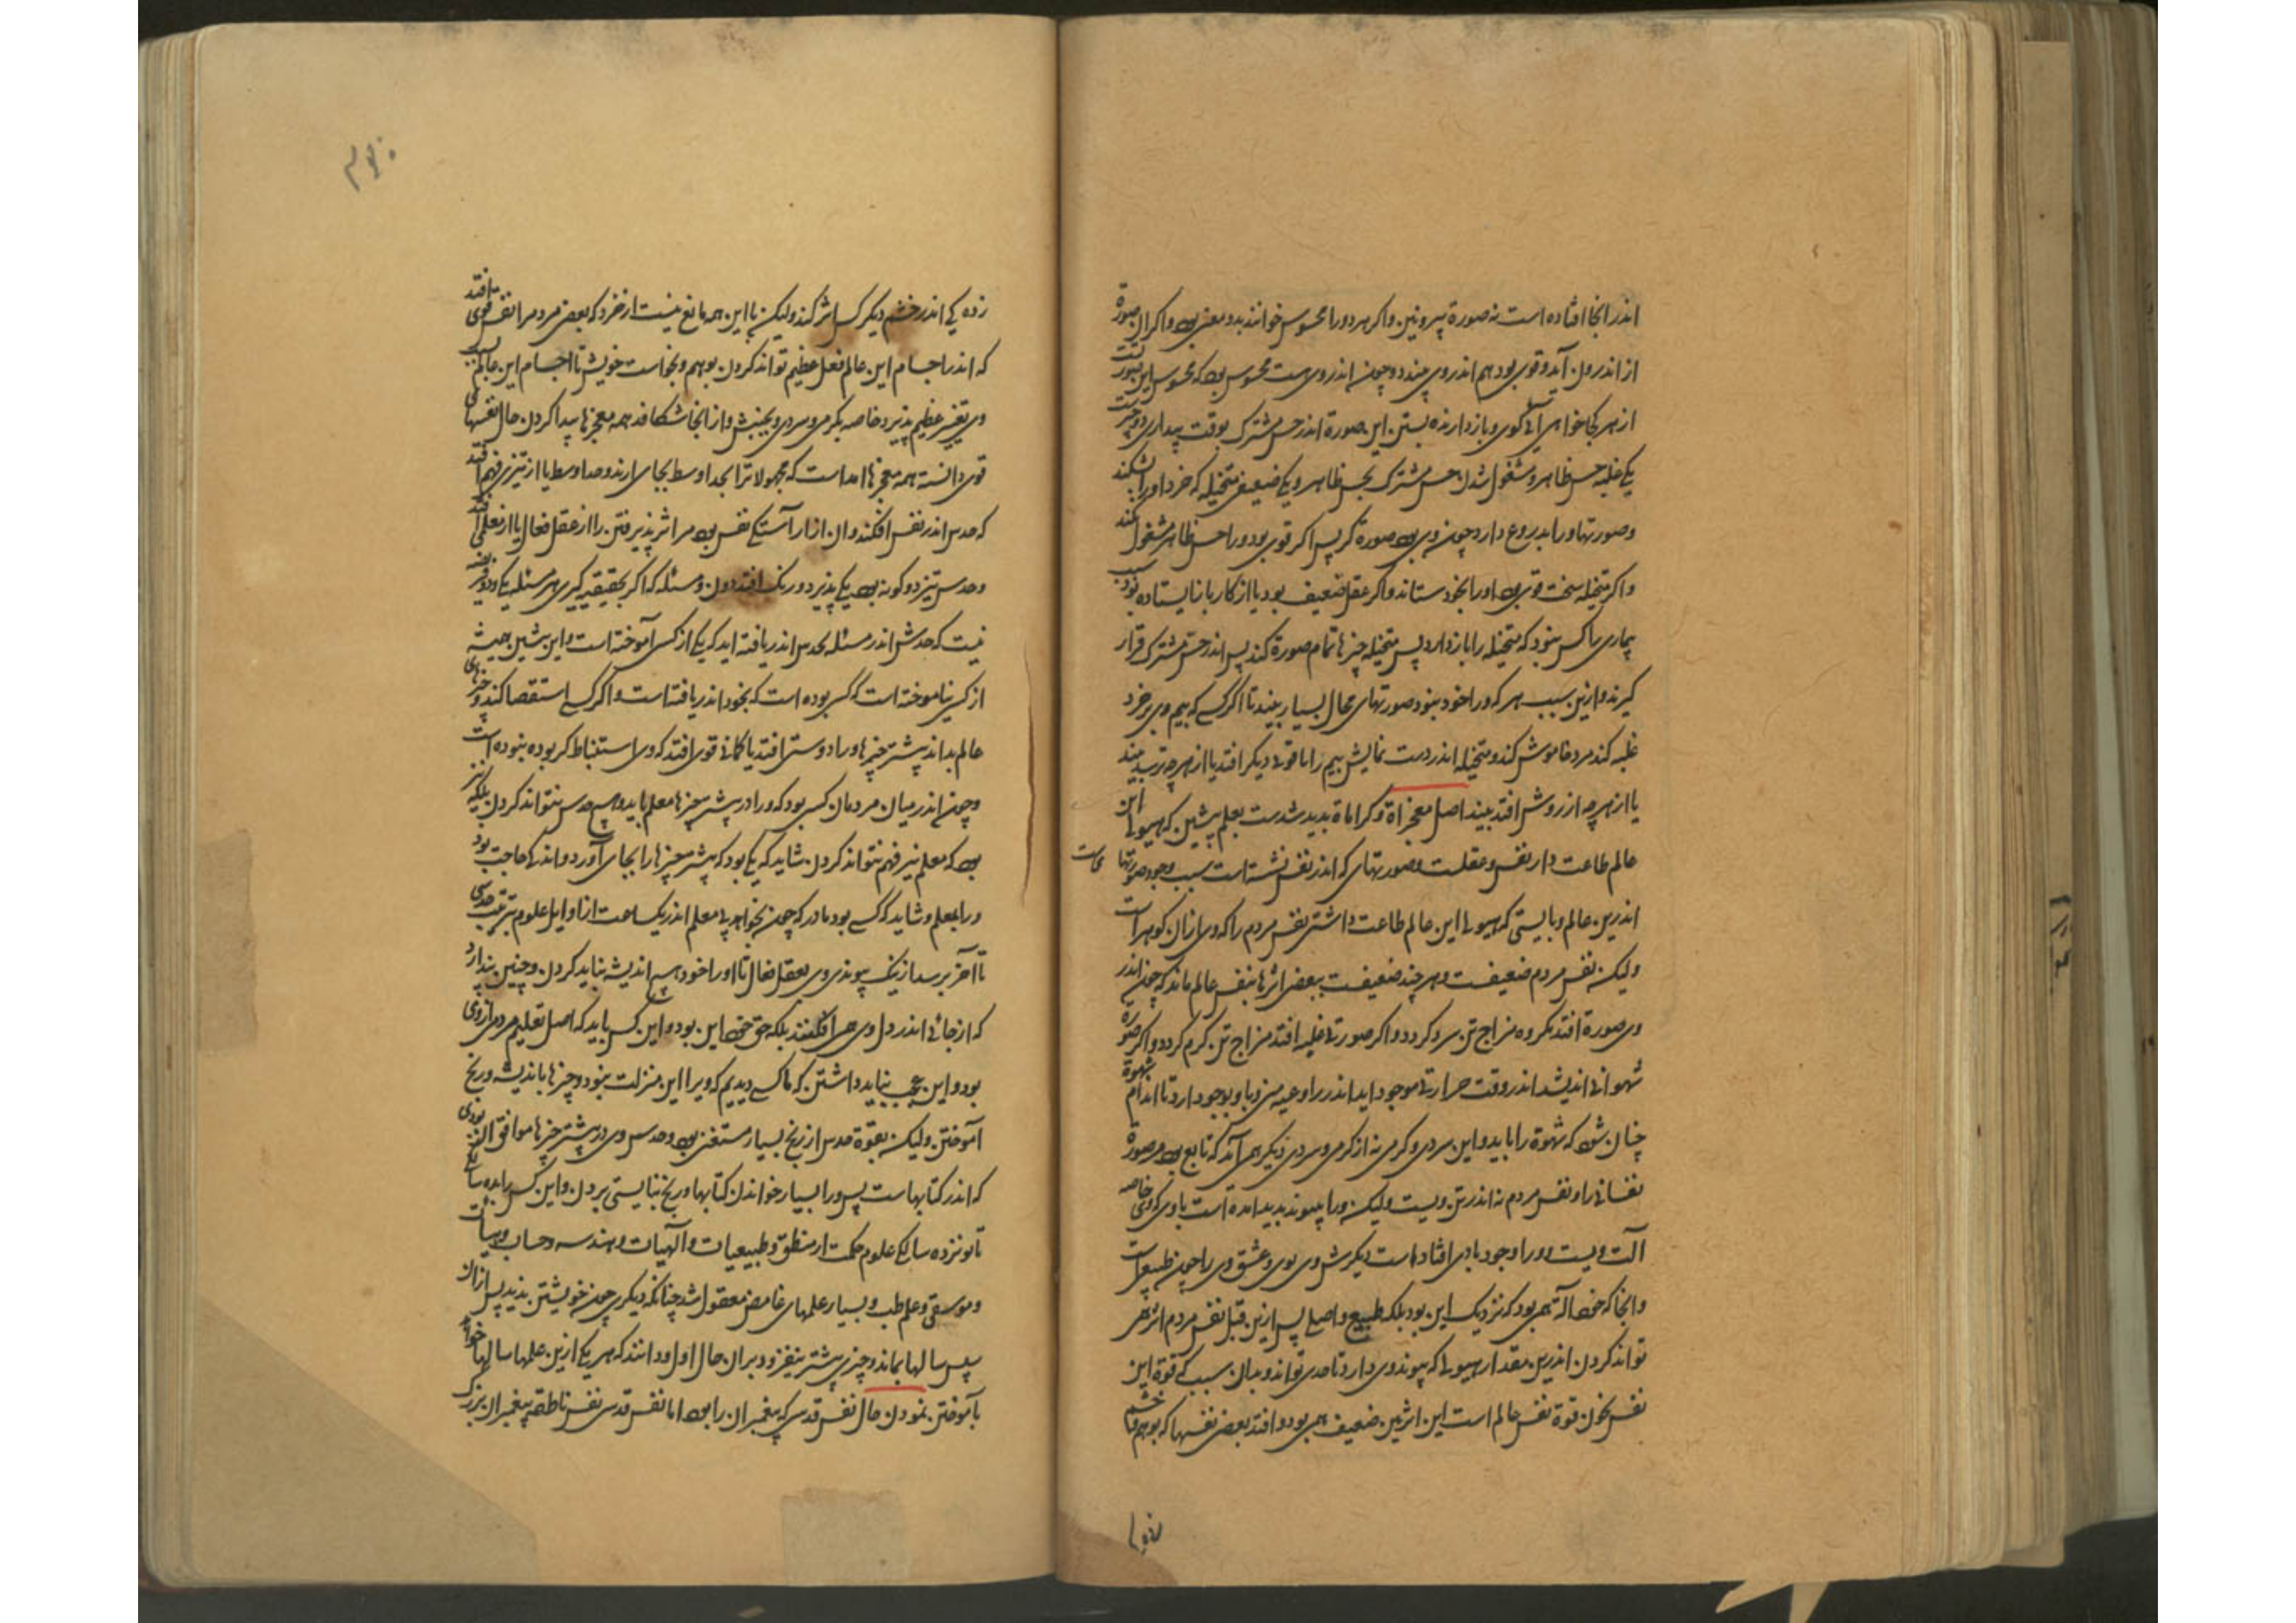 اندر انجا افتاده است نه صورة بیرونین واکر هر دو را محسوس خوانند بدو معنی بود واکر ان صورة
از اندرون آید و قوی بود هم اندر وی بیند و چون اندر وی هست محسوس بود که محسوس این صورت
از هر کجا خواهی آی کوی و بازدارنده بستن این صورة اندر حس مشترک بوقت بیداری دو چیزست
یکی غلبه حس ظاهر و مشغول شدن حس مشترک بحس ظاهر و یکی ضعیفی متخیله که خرد او را بشکند
وصورتها و را بدروغ دارد چون وی بود صورة کر پس اکر قوی بود و را حس ظاهر مشغول نکند
واکر متخیله سخت قوی بود او را بخود ستاند واکر عقل ضعیف بود یا از کار باز ایستاده بود بسبب
بیماری باکس نبود که متخیله را باز دارد پس متخیله چیزها تمام صورة کند پس اندر حس مشترک قرار
کیرند و ازین سبب هر که و را خود نبود صورتهای محال بسیار بیند تا اکر کسی که بیم وی بر خرد
غلبه کند خرد خاموش کند و متخیله اندر دست نمایش بیم را با قوتی دیکر افتد یا از هر چه ترسد بیند
یا از هر چه آرزوش افتد بیند اصل معجزاة و کراماة بدید شدست بعلم پیشین که هیولی این
عالم طاعت دار نفس و عقلست وصورتهای که اندر نفس نشسته است سبب وجود صورتها ست
اندرین عالم و بایستی که هیولی این عالم طاعت داشتی نفس مردم را که وی از ان کوهر است
ولیکن نفس مردم ضعیفست و هر چند ضعیفست ببعض اثرها بنفس عالم ماند که چون اندر
وی صورة افتد مکروه مزاج تن سرد کردد واکر صورتی غلبه افتد مزاج تن کرم کردد واکر صورة
شهوانی اندیشد اندر وقت حرارتی موجود اید اندر اوعیه منی و باد بوجود ارد تا اندام شهوة
چنان شود که شهوة را باید و این سردی و کرمی نه از کرمی و سردی دیکر همی آید که تابع بود مر صورة
نفسانی را و نفس مردم نه اندر تن ویست ولیکن و را پیوند بدید امده است باوی که وی خاصه
آلت ویست و و را وجود با وی افتاد است دیکرش وی بوی و عشق وی را چون طبیع است
وانجا که خود اله همی بود که نزدیک این بود بلکه طبیع و اصلی پس ازین قبل نفس مردم اثر همی
تواند کردن اندرین مقدار هیولی که پیوند وی دارد تا حدی تواند و بدان سبب که قوة این
نفس نچون قوة نفس عالم است این اثر بس ضعیف همی بود و افتد بعض نفسها که بوهم و یا خشم
زده یکی اندر خشم دیکر کس اثر کند ولیکن با این همه مانع نیست از خرد که بعض مردم را نفس قوی افتد
که اندر اجسام این عالم فعل عظیم تواند کردن بوهم و بخواست خویش تا اجسام این عالم بسبب
وی تغیر عظیم پذیرد خاصه بکرمی و سردی و بجنبش و از انجا شکافد همه معجزها پیدا کردن حال نفسهای
قوی دانسته همه معجزها امد است که مجهولاترا بحد اوسط بجای ارند و حد اوسط یا از تیزی فهم افتد
که حدس اندر نفس افکند و ان از اراستکی نفس بود مر اثر پذیرفتن را از عقل فعال یا از معلمی افتد
و حدس نیز دو کونه بود یکی بدیر و درنک افتد و ان و مسئله که اکر بحقیقه کیری هر مسئله یکی و دو و بعض
نیست که حدش اندر مسئله بحدس اندر یافته اید که یکی از کس آموخته است و این پیشین همیشه
از کس نیاموخته است که کس بوده است که بخود اندر یافته است واکر کسی استقصا کند و چیزهای
عالم بداند بیشتر چیزها و را دوستی افتد یا کمانی قوی افتد که وی استنباط کر بوده نبوده است
و چون اندر میان مردمان کس بود که و را در بیشتر چیزها معلم باید و هیچ حدس نتواند کردن بلکه نیز
بود که معلم نیز فهم نتواند کردن شاید که یکی بود که بیشتر چیزها را بجای آورد و اندکی حاجت بود
و را بمعلم و شاید که کسی بود نادر که چون بخواهد بی معلم اندر یک ساعت از اوایل علوم بترتیب حدسی
تا آخر برسد از نیک پیوندی وی بعقل فعال تا او را خود هیچ اندیشه نباید کردن و چنین پندارد
که از جائی اندر دل وی همی افکنند بلکه حق خود این بود و این کس باید که اصل تعلیم مردم از وی
بود و این عجب نباید داشتن که ما کسی دیدیم که ویرا این منزلت نبود و چیزها باندیشه و رنج
آموختن ولیکن بقوة حدس از رنج بسیار مستغنی بود و حدس وی در بیشتر چیزها موافق ان بودی
که اندر کتابهاست پس و را بسیار خواندن کتابها و رنج نبایستی بردن و این کس را بده سالکی
تا نوزده سالکی علوم حکمت از منطق و طبیعیات و الهیات و هندسه و حساب و هیات
و موسیقی و علم طب و بسیار علمهای غامض معقول شد چنانکه دیکری چون خویشتن ندید پس از ان
سپس سالها بماند و چیزی بیشتر نیفزود بر ان حال اول و دانند که هر یکی ازین علمها سالها خواهد
بآموختن نمودن حال نفس قدسی که پیغمبران را بود اما نفس قدسی نفس ناطقه پیغمبران بزرک